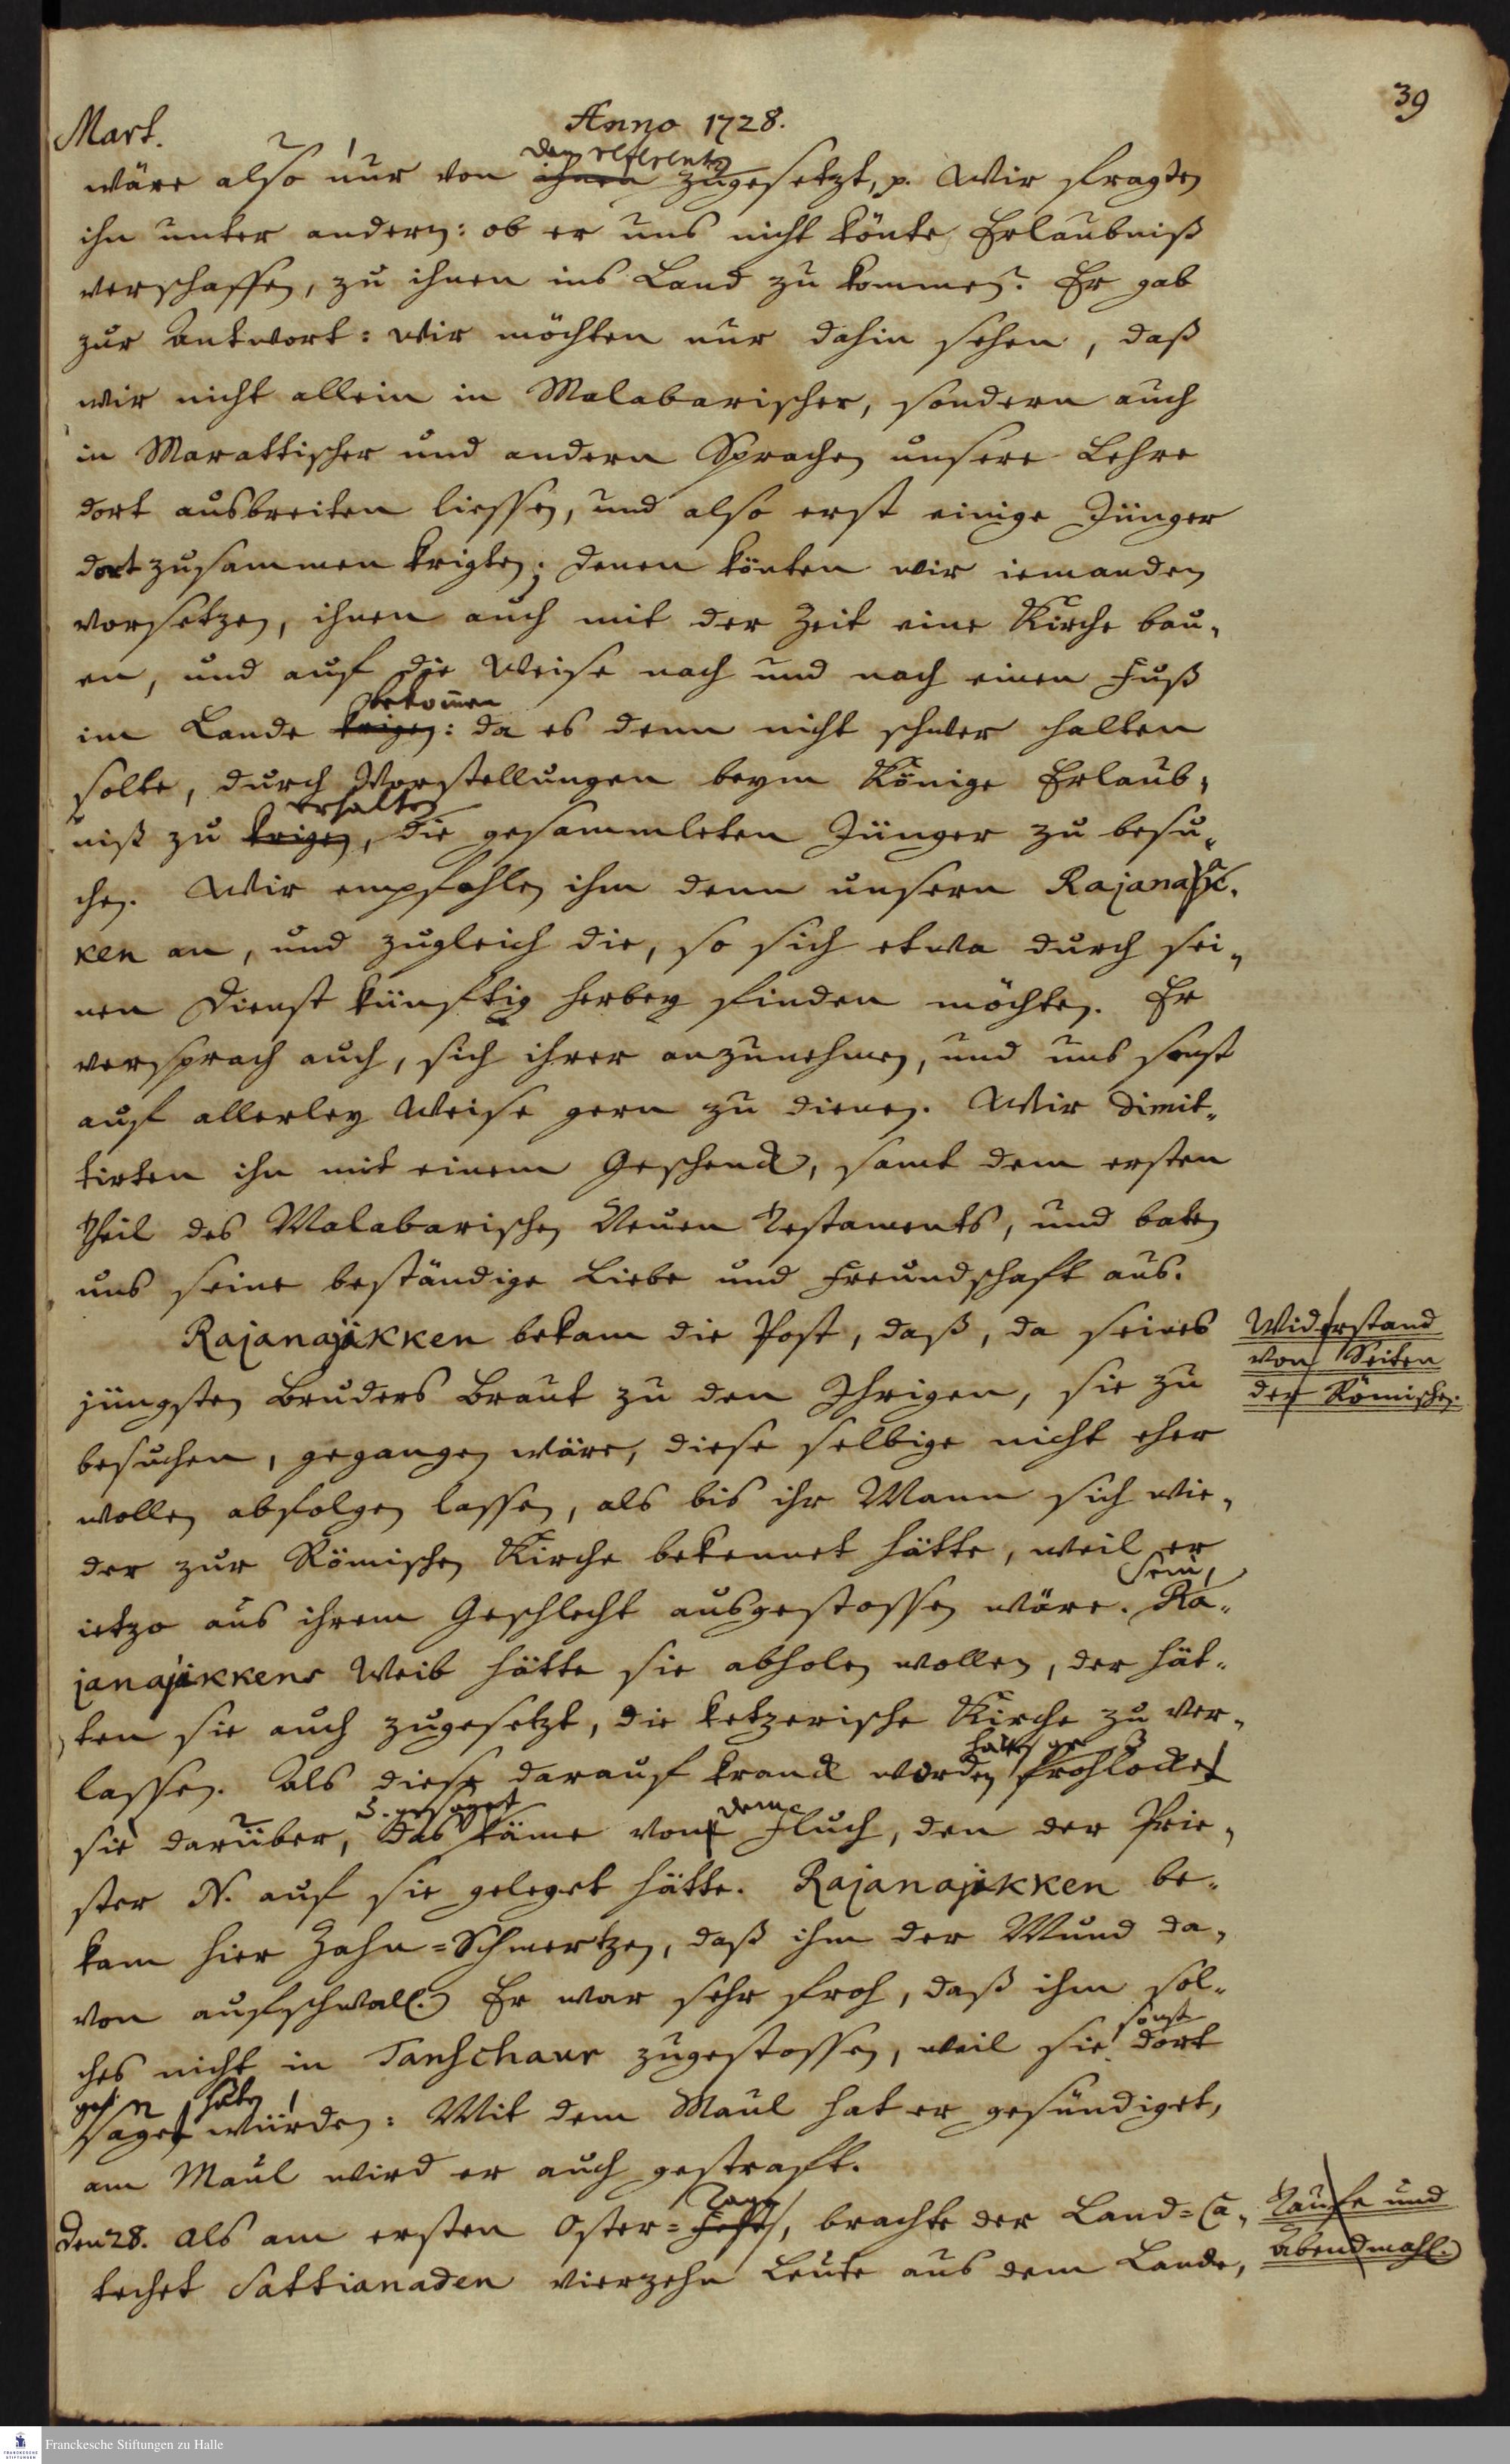 39
Mart.
Anno 1728.
den referenten
wäre also nur von ihnen zugesetzt, p. Wir fragten
ihn unter andern: ob er uns nicht könte Erlaubniß
verschaffen, zu ihnen ins Land zu kommen? Er gab
zur Antwort: Wir möchten nur dahin sehen, daß
wir nicht allein in Malabarischer, sondern auch
in Marattischer und andern Sprachen unsere Lehre
dort ausbreiten liessen, und also erst einige Jünger
dort zusammen krigten; denen könten wir iemanden
vorsetzen, ihnen auch mit der Zeit eine Kirche bau-
en, und auf die Weise nach und nach einen Fuß
bekommen
im Lande krigen: da es denn nicht schwer halten
solte, durch Vorstellungen beym Könige Erlaub-
erhalten
niß zu krigen, die gesammleten Jünger zu besu-
chen. Wir empfohlen ihm denn unsern Rajanaik-
ken an, und zugleich die, so sich etwa durch sei-
nen Dienst künftig herbey finden möchten. Er
versprach auch, sich ihrer anzunehmen, und uns sonst
auf allerley Weise gern zu dienen. Wir dimit-
tirten ihn mit einem Geschenck, samt dem ersten
Theil des Malabarischen Neuen Testaments, und baten
uns seine beständige Liebe und Freundschaft aus.
Rajanaikken bekam die Post, daß, da seines
jüngsten Bruders Braut zu den Ihrigen, sie zu
besuchen, gegangen wäre, diese selbige nicht eher
wollen abfolgen lassen, als bis ihr Mann sich wie-
der zur Römischen Kirche bekennet hätte, weil er
ietzo aus ihrem Geschlecht ausgestossen wäre. Ra-
janaikkens Weib hätte sie abholen wollen, der hät-
ten sie auch zugesetzt, die ketzerische Kirche zu ver-
hätten ge
lassen. Als diese darauf kranck worden frohlocket
u. gesaget
dem
sie darüber, das käme vom Fluch, den der Prie-
ster N. auf sie geleget hätte. Rajanaikken be-
kam hier Zahn-Schmertzen, daß ihm der Mund da-
von aufschwall. Er war sehr froh, daß ihm sol-
sonst
ches nicht in Tanschaur zugestossen, weil sie dort
hätten
sagen würden: Mit dem Maul hat er gesündiget,
am Maul wird er auch gestraft.
Tage
Den 28. Als am ersten Oster-Fest, brachte der Land-Ca-
techet Sattianaden vierzehn Leute aus dem Lande,
Widerstand
von Seiten
der Römischen.
Taufe und
Abendmahl.
Franckesche Stiftungen zu Halle